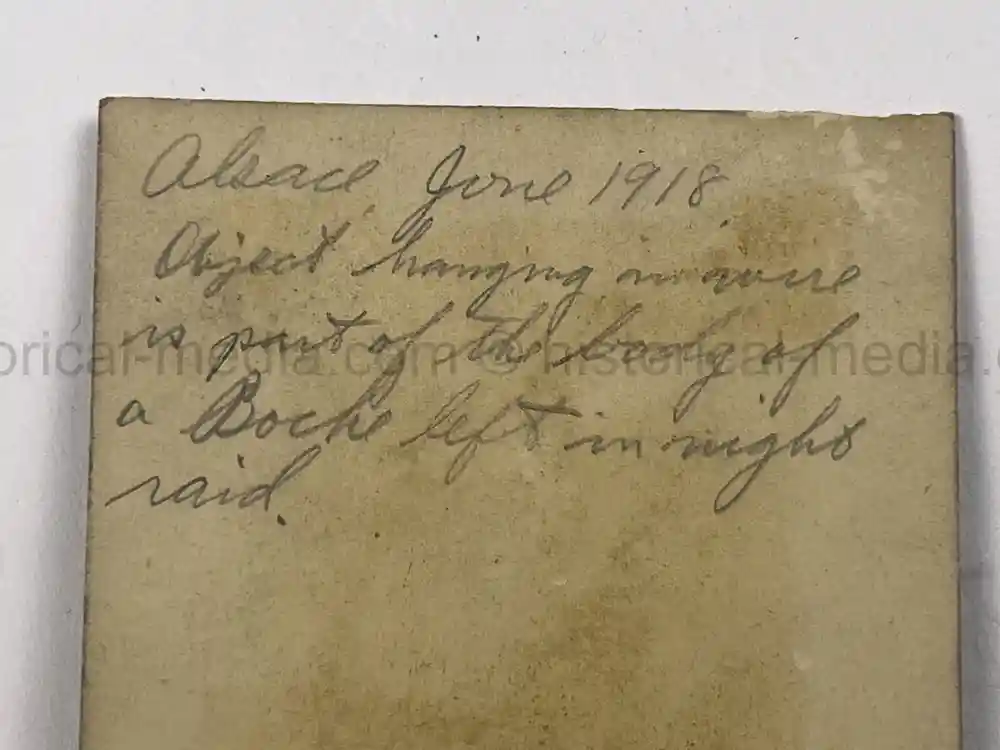 Alsace June 1918
Object hanging in wire
is part of the body of
a Boche left in night
raid.
orical-media.com © historical-media.c